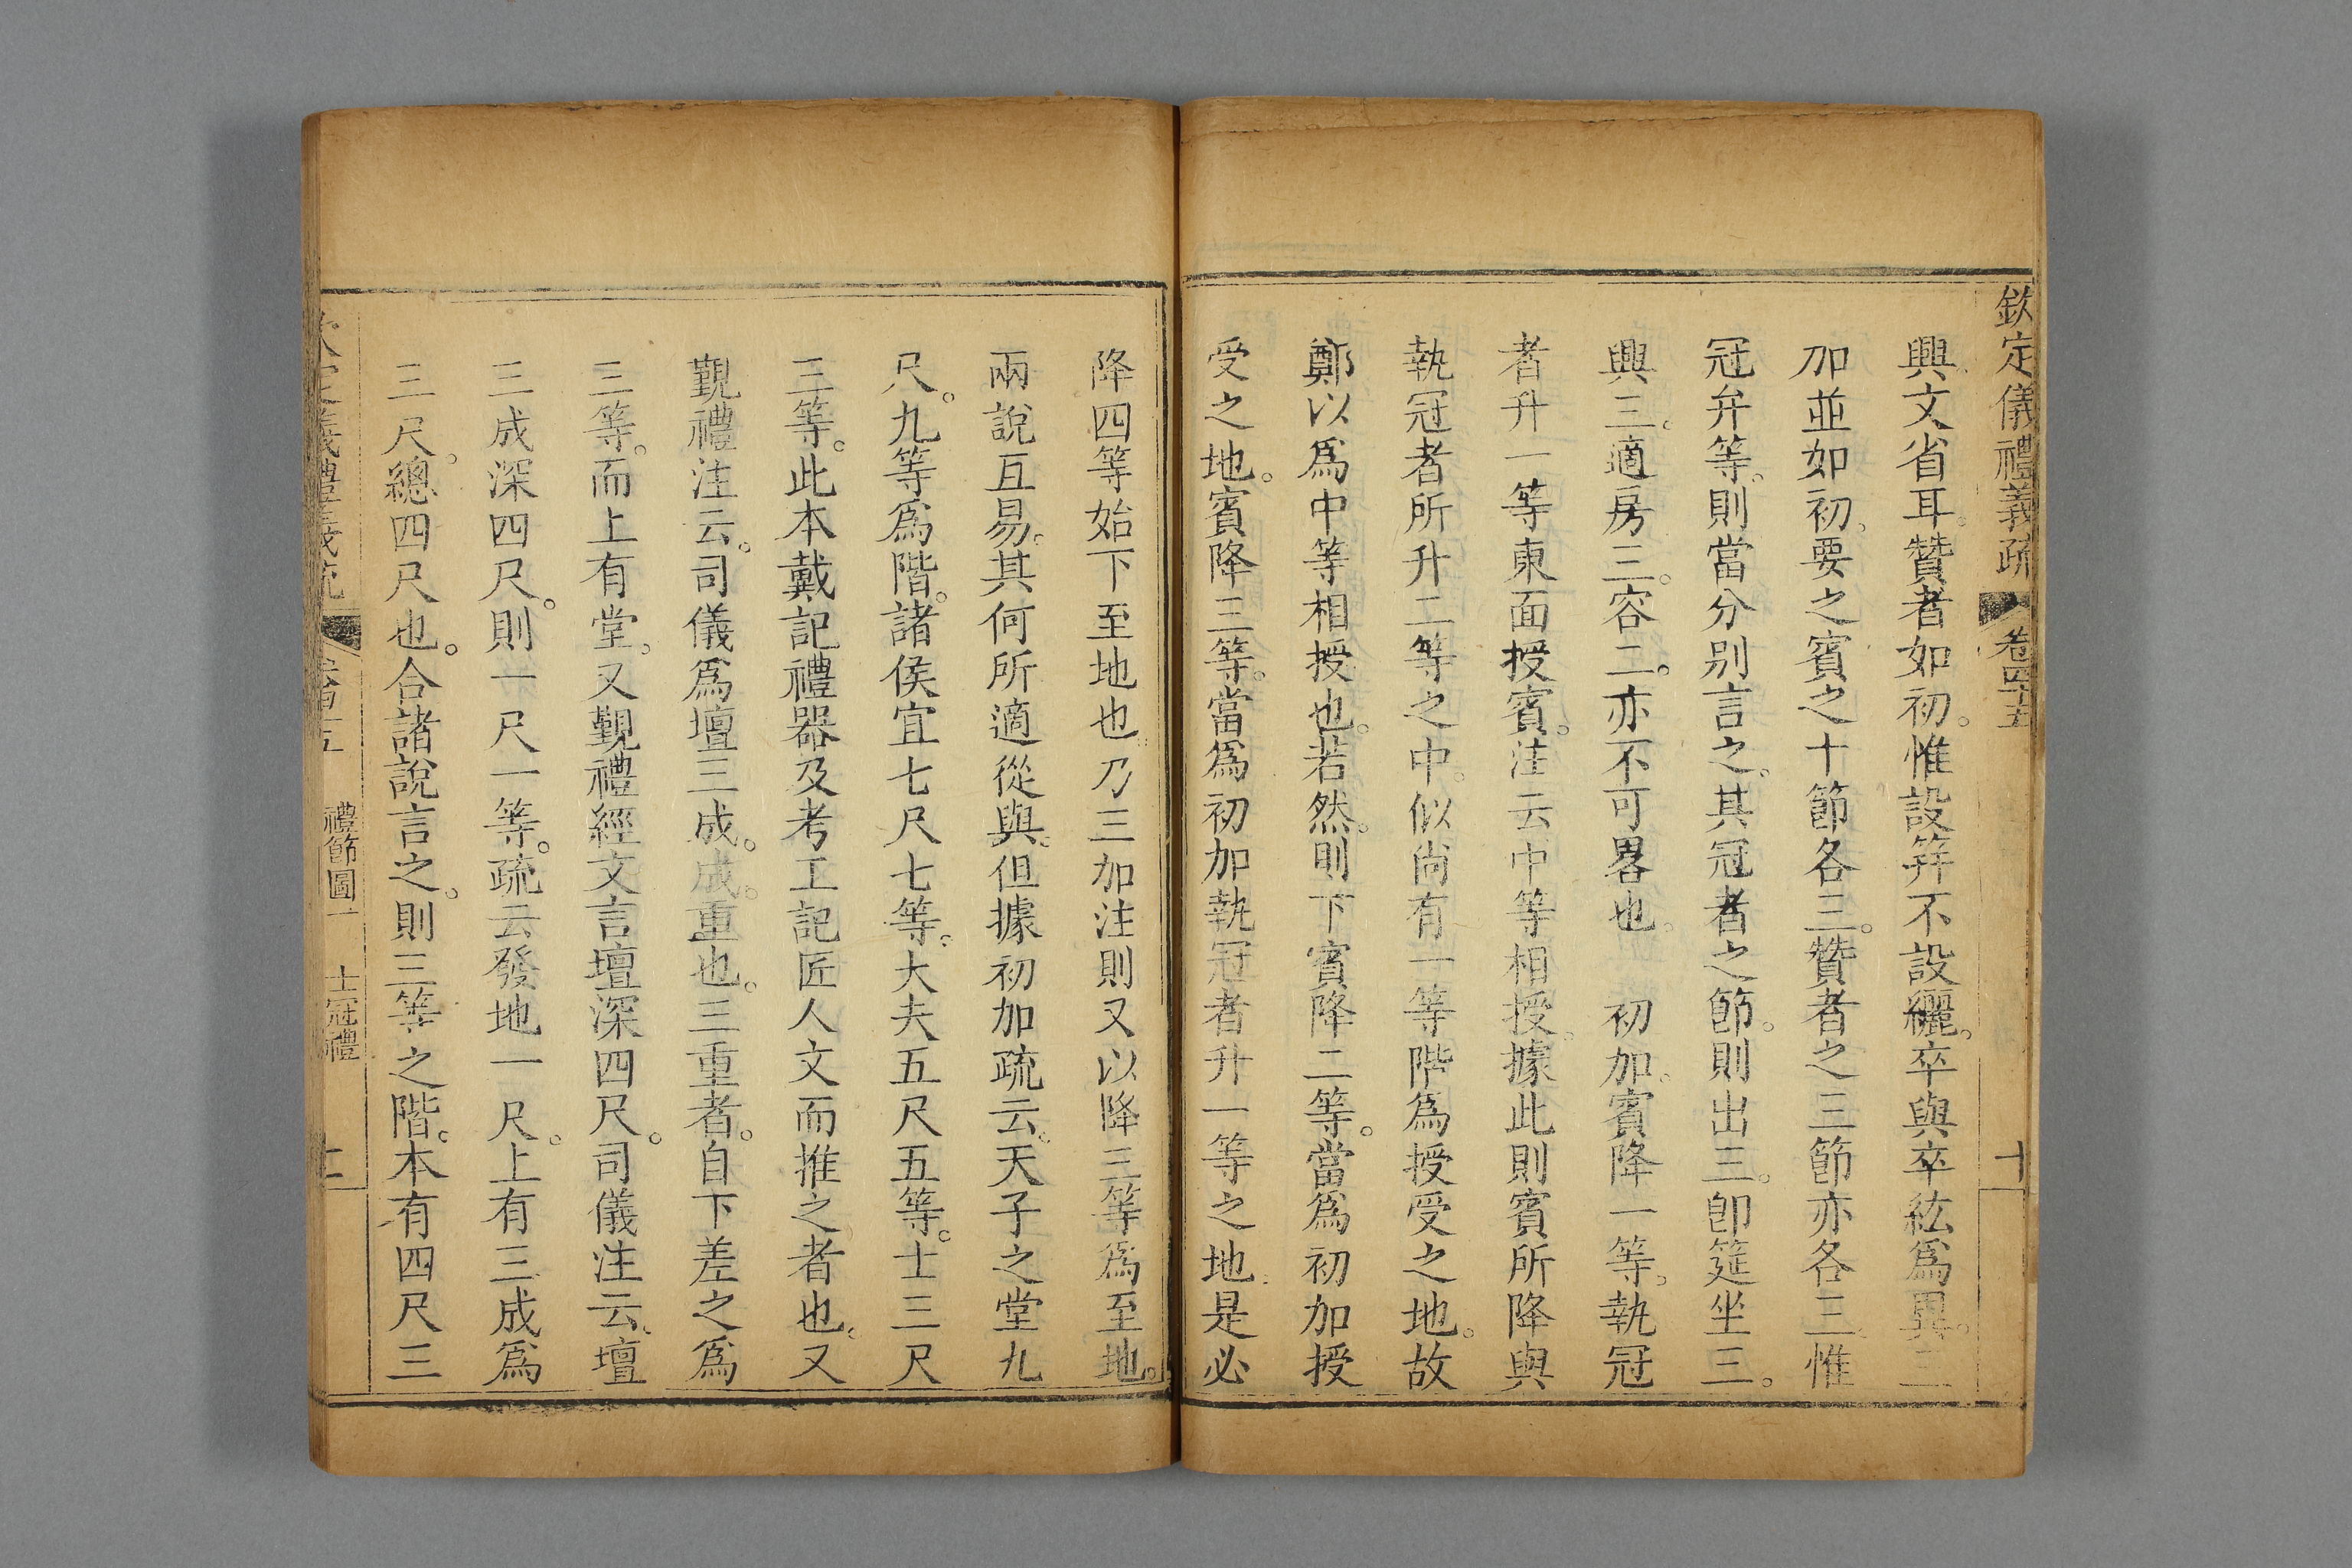 欽定儀禮義疏 卷四十五 十
興文省耳。贊者如初。惟設筓不設纚。卒與卒紘爲異。三
加並如初。要之賓之十節各三。贊者之三節亦各三。惟
冠弁等。則當分別言之。其冠者之節。則出三。卽筵坐三。
興三。適房三。容二。亦不可畧也。 初加。賓降一等。執冠
者升一等東面授賓。注云中等相授。據此則賓所降與
執冠者所升二等之中。似尚有一等階爲授受之地。故
鄭以爲中等相授也。若然。則下賓降二等。當爲初加授
受之地。賓降三等。當爲初加執冠者升一等之地。是必
降四等始下至地也。乃三加注則又以降三等爲至地。
兩說互易。其何所適從與。但據初加疏云。天子之堂九
尺。九等爲階。諸侯宜七尺七等。大夫五尺五等。士三尺
三等。此本戴記禮器及考工記匠人文而推之者也。又
覲禮注云。司儀爲壇三成。成。重也。三重者。自下差之爲
三等。而上有堂。又覲禮經文言壇深四尺。司儀注云。壇
三成深四尺。則一尺一等。疏云發地一尺。上有三成爲
三尺。總四尺也。合諸說言之。則三等之階。本有四尺三
禮節圖一 士冠禮